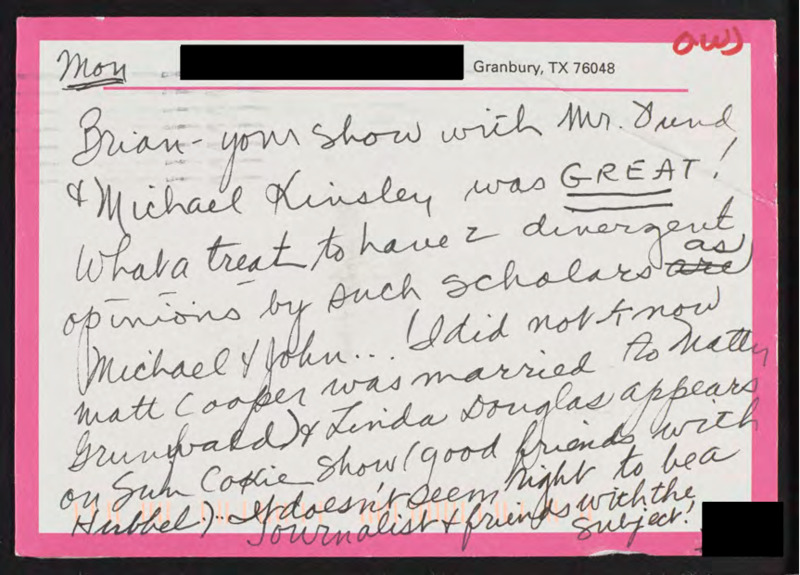 Mon
Granbury, TX 76048
OWJ
Brian - your show with Mr. Fund
& Michael Kinsley was GREAT!
What a treat to have 2 divergent
opinions by such scholars are as
Michael & John... I did not know
Matt Cooper was married to Matty
Grunwald) & Linda Douglas appears
on Sun Cokie Show (good friends with
Hubbel)... It doesn't seem right to be a
Journalist & friends with the
subject!